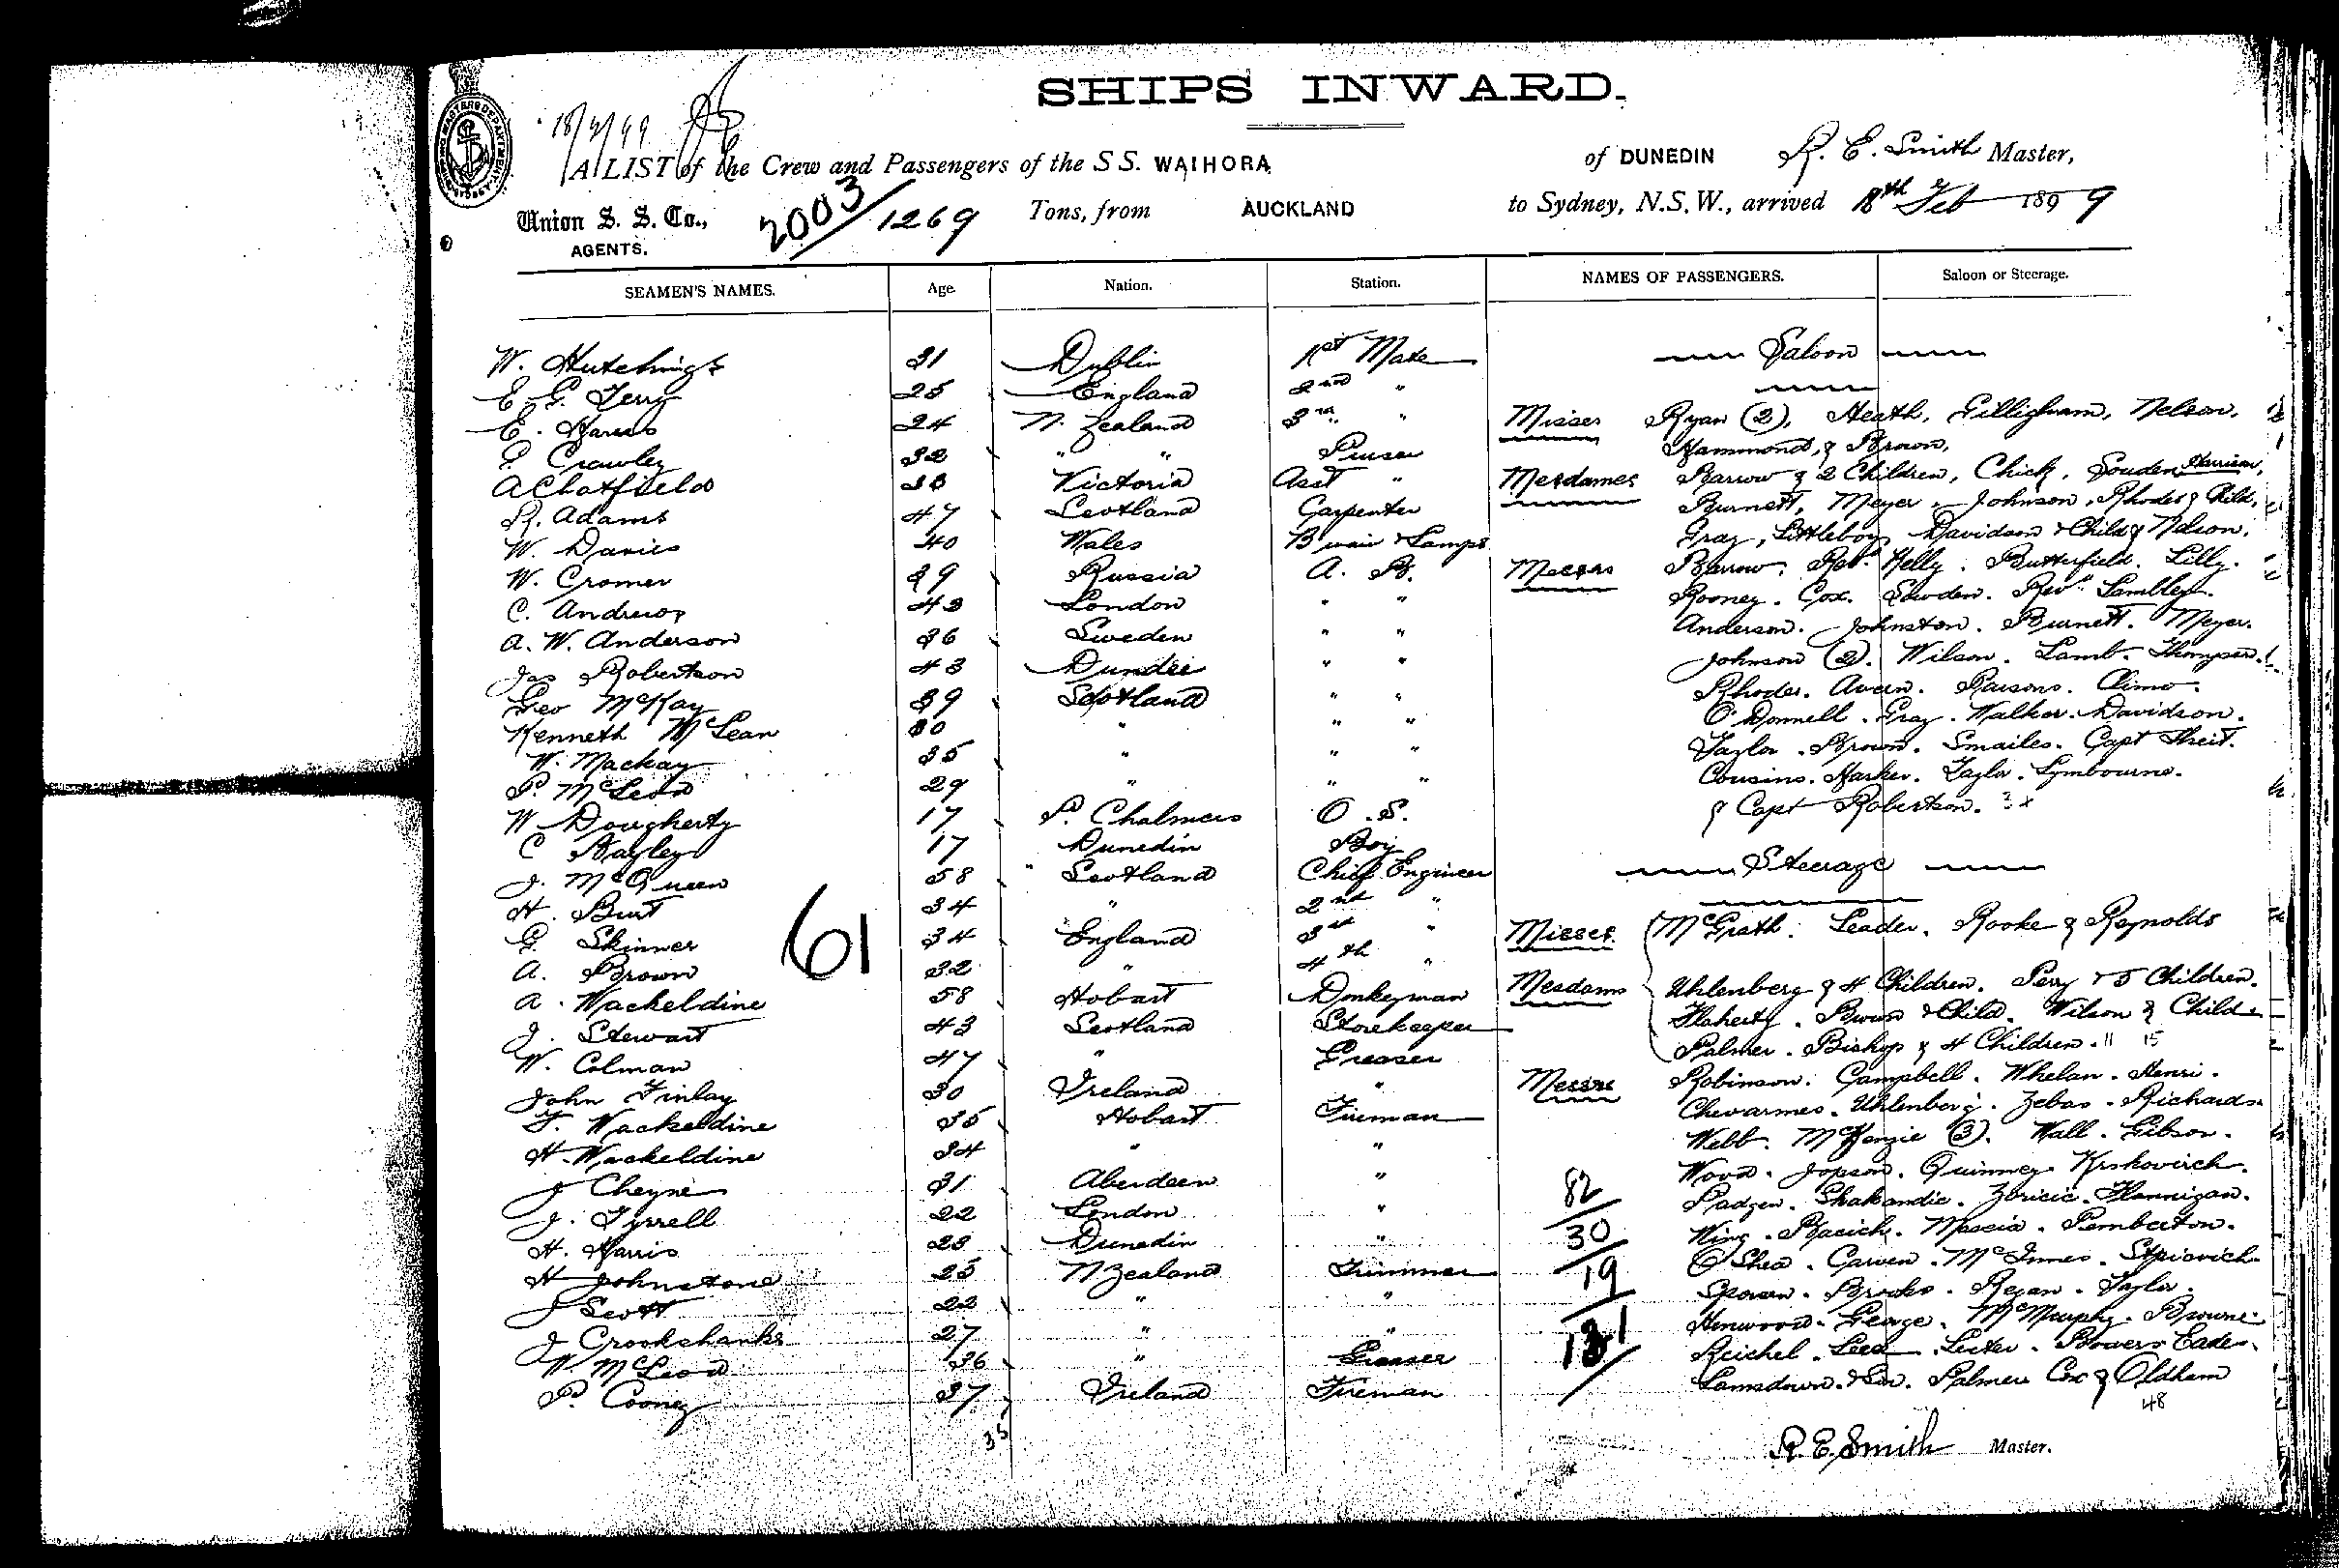 SHIPS INWARD.
18/2/99
A LIST of the Crew and Passengers of the S S. WAIHORA of DUNEDIN R. E. Smith Master,
Union S. S. Co., 2003/1269 Tons, from AUCKLAND to Sydney, N.S.W., arrived 18th Feb 1899
AGENTS.
SEAMEN'S NAMES. Age. Nation. Station.
W. Hutchings 31 Dublin 1st Mate
E. G. Terry 25 England 2nd "
E. Harris 24 N. Zealand 3rd "
P. Crawley 32 " " Purser
A Chatfield Victoria Asst "
R. Adams 47 Scotland Carpenter
W. Davies 40 Wales & Lamps
W. Cromer 39 Russia A. B.
C. Andrews 43 London " "
A. W. Anderson 36 Sweden " "
Jas Robertson 43 Dundee " "
Geo McKay 39 Scotland " "
Kenneth McLean 30 " " "
W. Mackay 35 " " "
P. McLeod 29 " " "
W Dougherty 17 P. Chalmers O. S.
C Bayley 17 Dunedin Boy
J. McQueen 58 Scotland Chief Engineer
H. Burt 34 " 2nd "
G. Skinner 34 England 3rd "
61
A. Brown 32 " 4th "
A. Wackeldine 58 Hobart Donkeyman
J. Stewart 43 Scotland Storekeeper
W. Colman 47 " Greaser
John Finlay 30 Ireland "
F. Wackeldine 35 Hobart Fireman
H. Wackeldine 34 " "
J Cheyne 31 Aberdeen "
J. Tyrrell 22 London "
H. Harris 23 Dunedin "
H Johnstone 25 N Zealand Trimmer
J Scott 22 " "
J Crookshanks 27 " "
W. McLeod 36 " Greaser
P. Cooney 37 Ireland Fireman
35
NAMES OF PASSENGERS. Saloon or Steerage.
Saloon
Misses Ryan (2), Heath, Gilligham, Nelson,
Hammond, & Brown,
Mesdames Barrow & 2 Children, Chick, Souden, Harrison,
Burnett, Meyer, Johnson, Rhodes & Child,
Gray, Littleboy, Davidson & Child & Nelson.
Messrs Barrow. Revd Kelly. Butterfield. Lilly.
Rooney. Cox. Sowden. Revd Lambley.
Anderson. Johnston. Burnett. Meyer.
Johnson (2). Wilson. Lamb. Thompson.
Rhodes. Parsons. Climo.
O'Donnell. Gray. Walker. Davidson.
Taylor. Brown. Smailes. Capt
Cousins. Harker. Taylor. Lymbourne.
& Capt Robertson.
Steerage
Misses McGrath. Leader. Rooke & Reynolds
Mesdams Uhlenberg & 4 Children. Perry & 5 Children.
Flaherty. & Child. Wilson & Child
Palmer. Bishop & 4 Children. 11 15
Messrs Robinson. Campbell. Whelan. Henri.
Uhlenberg. Zebas. Richards.
Webb. McKenzie (3). Wall. Gibson.
Wood. Jopson. Quinney.
Padgen. Zoricic. Flannigan.
King. Pemberton.
O'Shea. McInnes.
Brooks. Regan. Taylor.
Henwood. George. McMurphy. Browne
Reichel. Bowers. Eades.
Lansdown. & Son. Palmer Cox & Oldham
48
82
30
19
131
R. E. Smith Master.